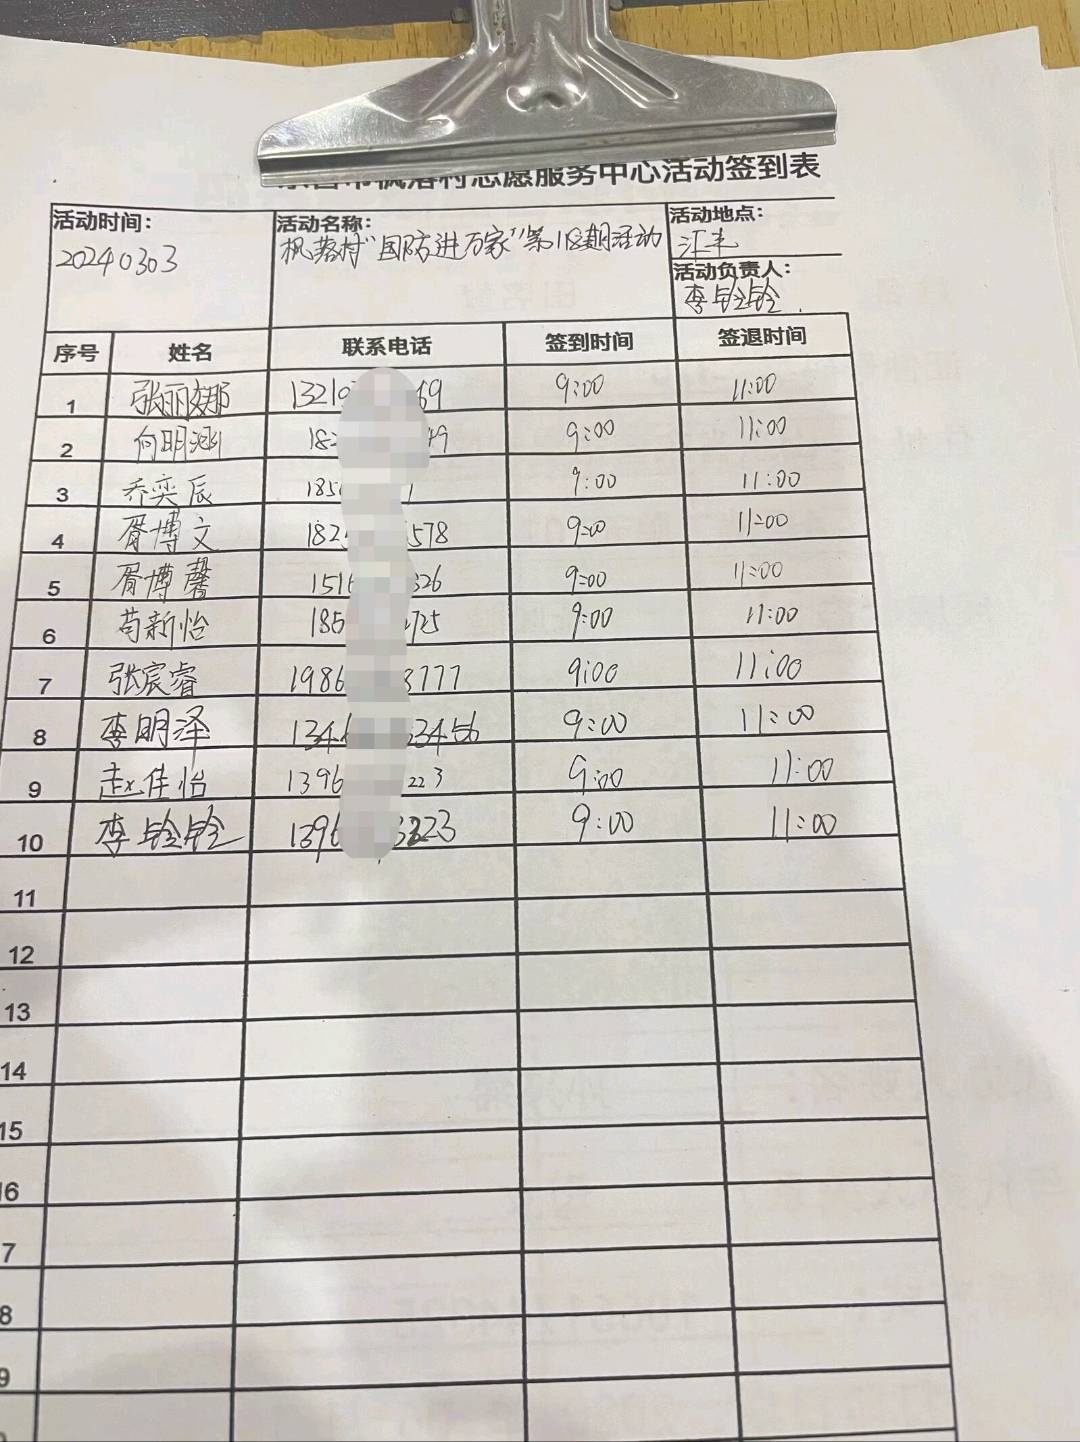 枫落村志愿服务中心活动签到表
活动时间： 活动名称： 活动地点：
20240303 枫落村“国防进万家”第118期活动 汇丰
活动负责人：
李铃铃
序号 姓名 联系电话 签到时间 签退时间
1 张丽娜 1321 69 9:00 11:00
2 向明渊 18 49 9:00 11:00
3 乔奕辰 185 1 9:00 11:00
4 胥博文 182 578 9:00 11:00
5 胥博馨 151 326 9:00 11:00
6 苟新怡 185 725 9:00 11:00
7 张宸睿 1986 3777 9:00 11:00
8 李明泽 134 3456 9:00 11:00
9 赵佳怡 1396 223 9:00 11:00
10 李铃铃 1396 3223 9:00 11:00
11
12
13
14
15
16
7
8
9